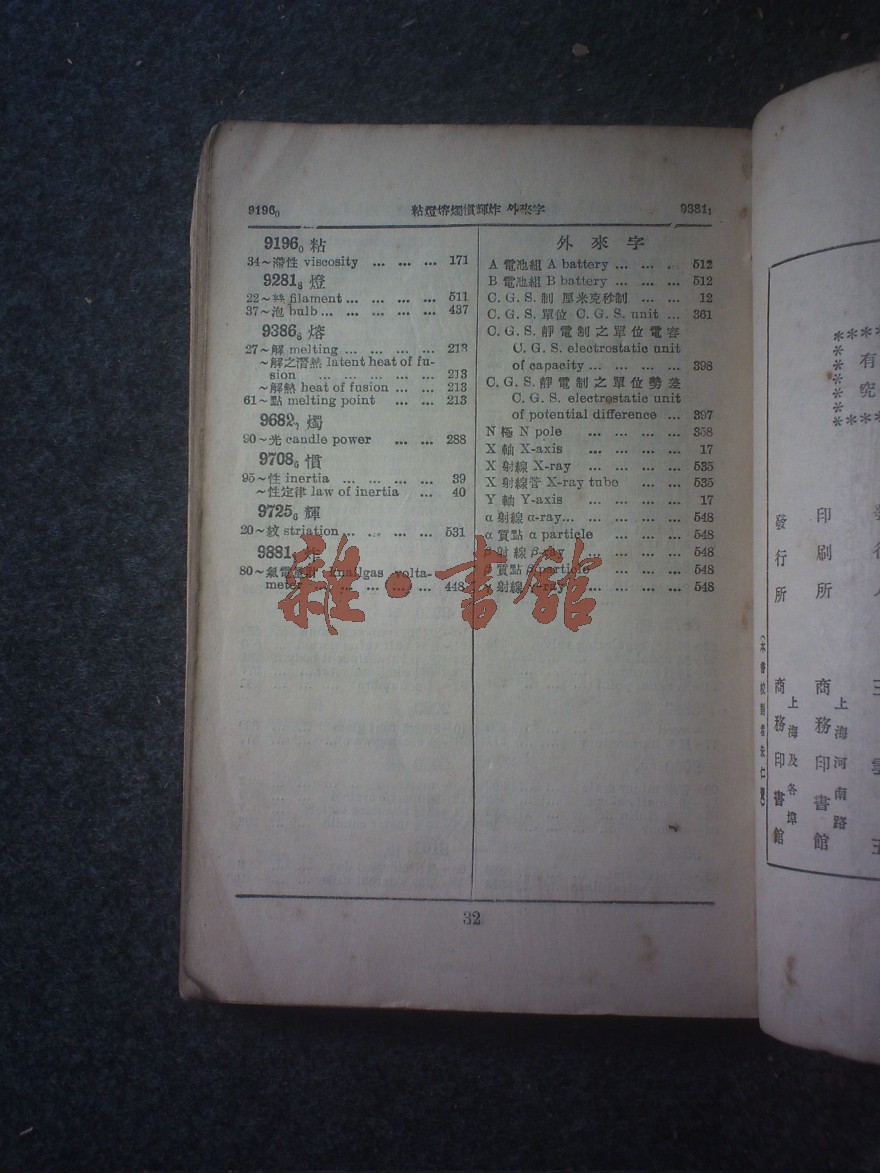 9196₀ 粘燈熔燭慣輝炸 外來字 9881₁
9196₀ 粘
34~滯性 viscosity ... ... ... 171
9281₈ 燈
22~絲 filament ... ... ... ... 511
37~泡 bulb ... ... ... ... ... 437
9386₈ 熔
27~解 melting ... ... ... ... 213
~解之潛熱 latent heat of fu-
sion ... ... ... ... ... 213
~解熱 heat of fusion ... ... 213
61~點 melting point ... ... 213
9682₇ 燭
90~光 candle power ... ... 288
9708₆ 慣
95~性 inertia ... ... ... ... 39
~性定律 law of inertia ... 40
9725₆ 輝
20~紋 striation ... ... ... ... 531
9881₁ 炸
80~氣電量計 knallgas volta-
meter ... ... ... ... ... 448
外來字
A 電池組 A battery ... ... ... 512
B 電池組 B battery ... ... ... 512
C. G. S. 制 厘米克秒制 ... ... 12
C. G. S. 單位 C. G. S. unit ... 361
C. G. S. 靜電制之單位電容
C. G. S. electrostatic unit
of capacity ... ... ... ... 398
C. G. S. 靜電制之單位勢差
C. G. S. electrostatic unit
of potential difference ... 397
N 極 N pole ... ... ... ... 358
X 軸 X-axis ... ... ... ... 17
X 射線 X-ray ... ... ... ... 535
X 射線管 X-ray tube ... ... 535
Y 軸 Y-axis ... ... ... ... 17
α 射線 α-ray ... ... ... ... ... 548
α 質點 α particle ... ... ... 548
β 射線 β-ray ... ... ... ... 548
β 質點 β particle ... ... ... 548
γ 射線 γ-ray ... ... ... ... 548
32
雜·書館
有
究
印刷所
上海河南路
商務印書館
發行所
上海及各埠
商務印書館